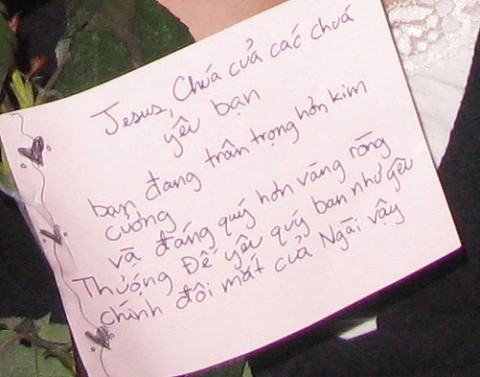 Jesus, Chúa của các chúa
yêu bạn
bạn đang trân trọng hơn kim
cương
và đáng quý hơn vàng ròng
Thượng Đế yêu quý bạn như yêu
chính đôi mắt của Ngài vậy